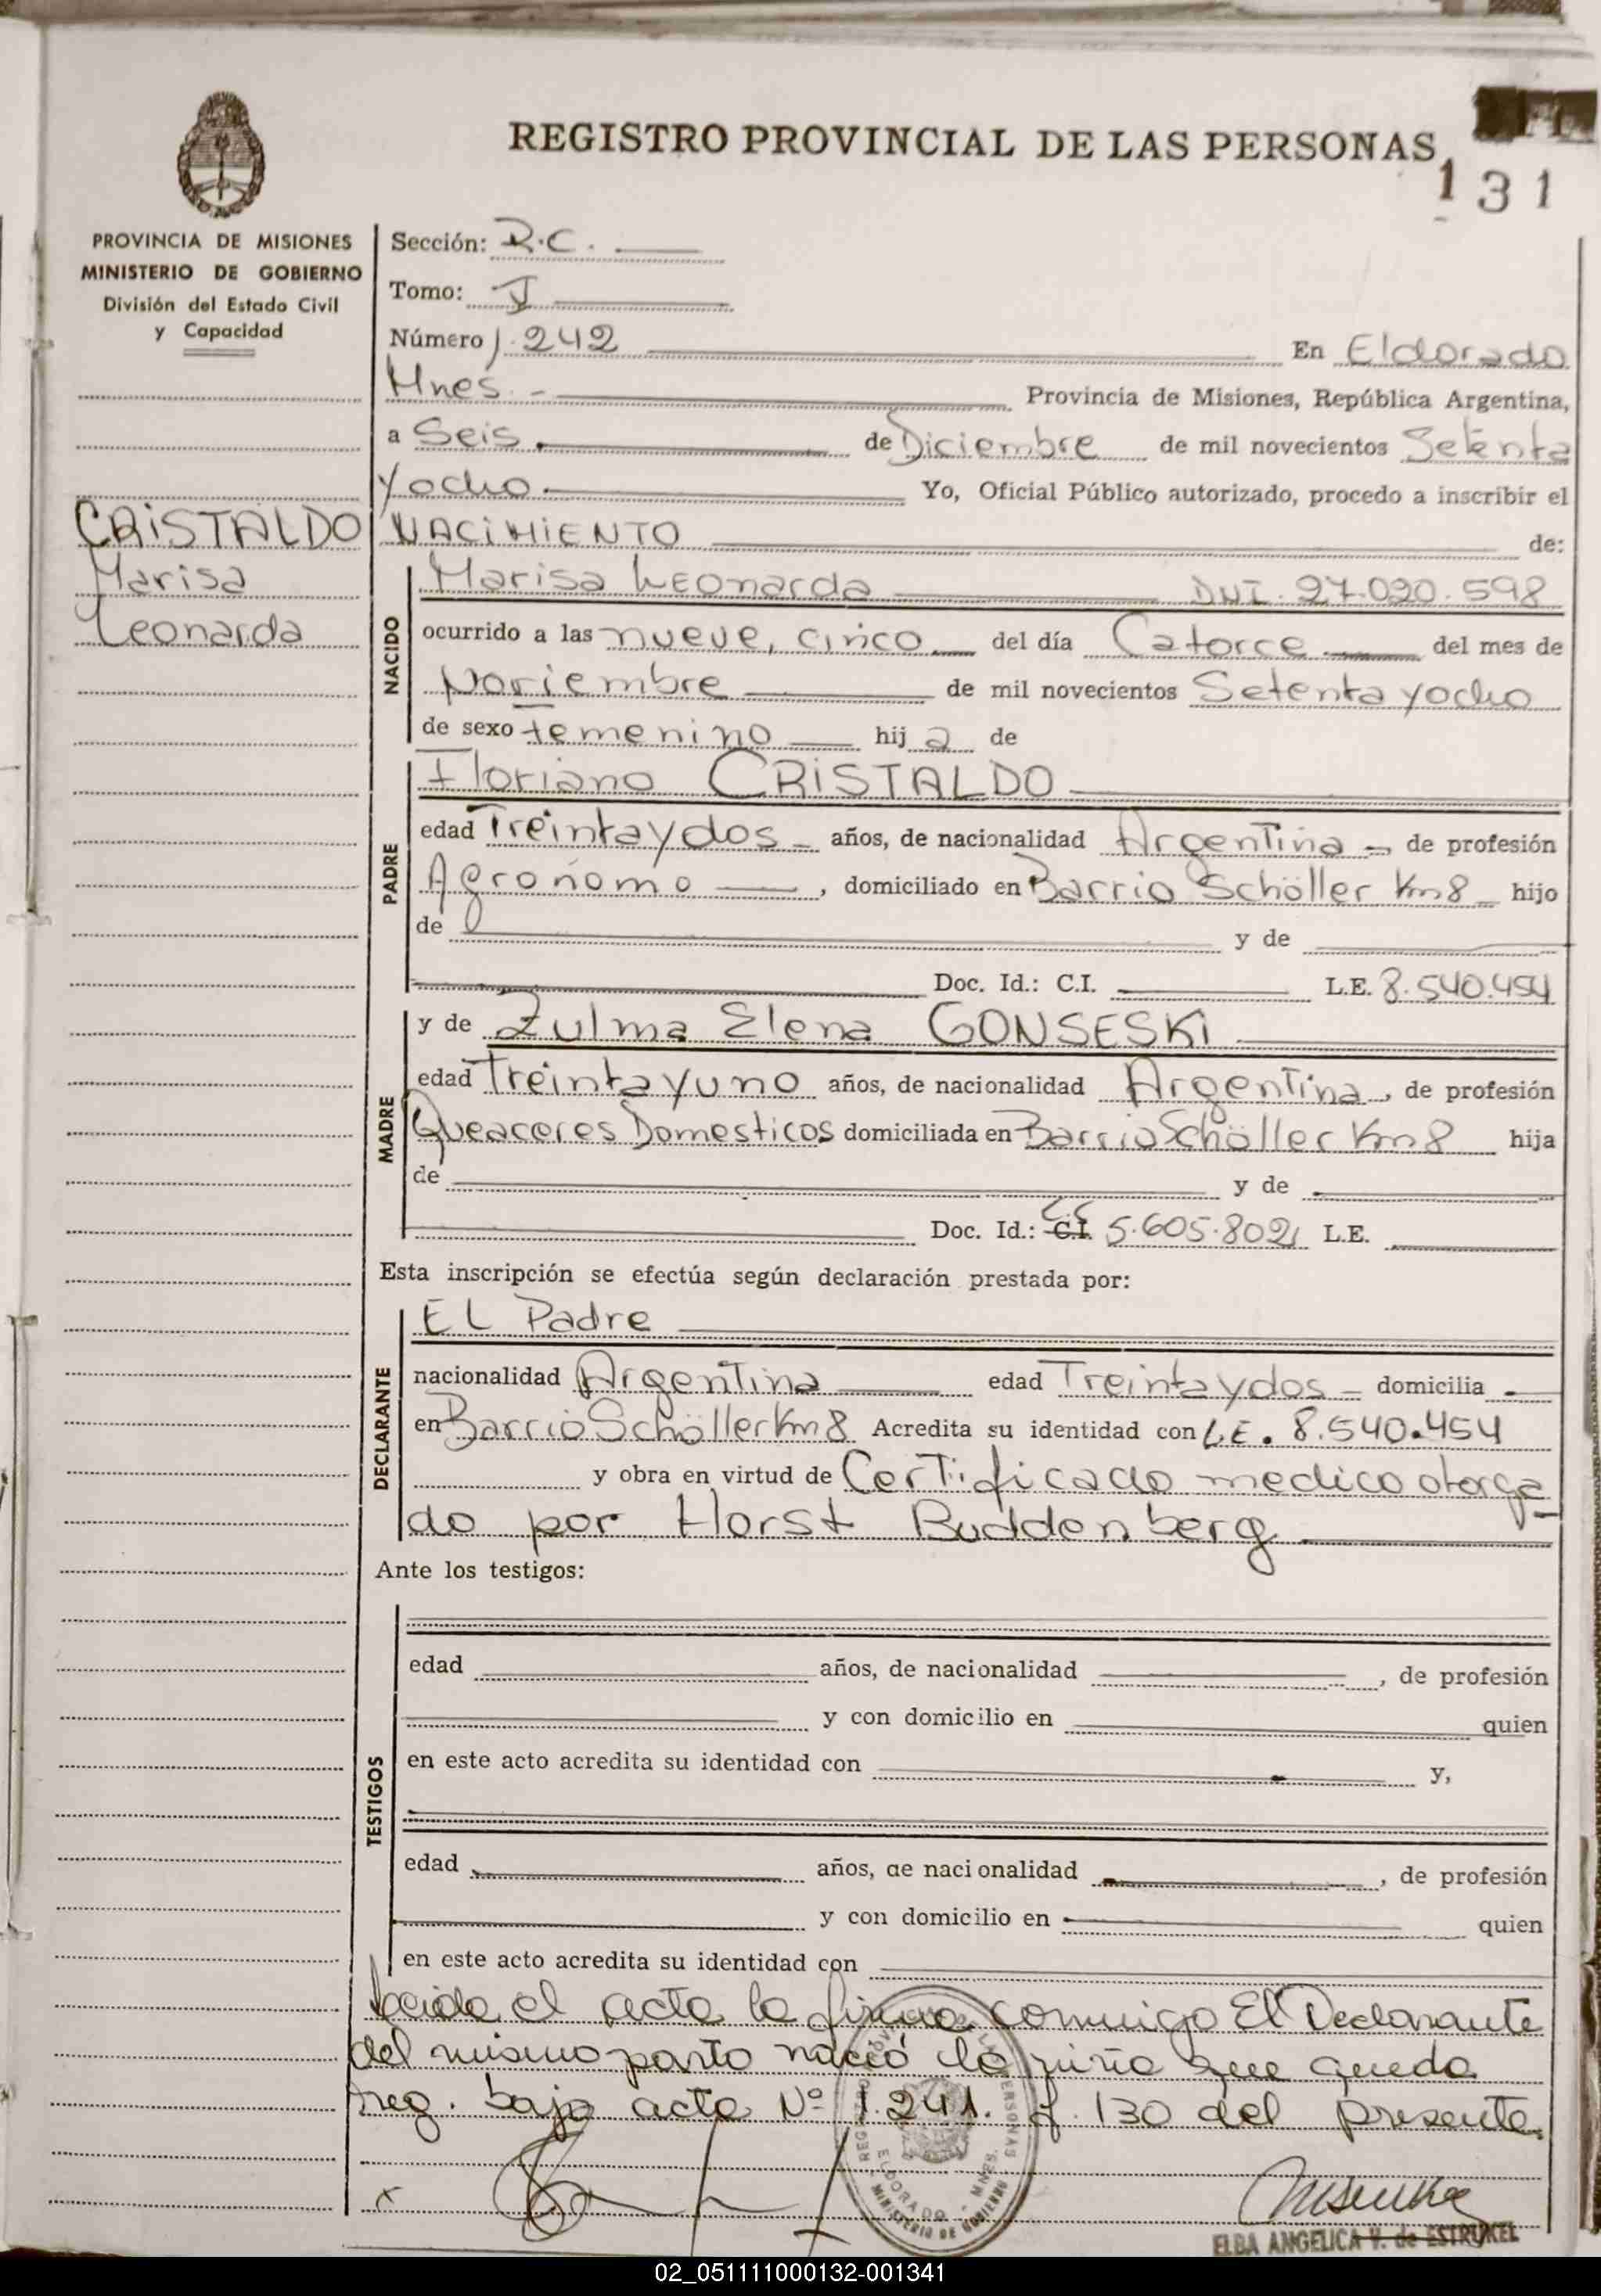 REGISTRO PROVINCIAL DE LAS PERSONAS
131
PROVINCIA DE MISIONES
MINISTERIO DE GOBIERNO
División del Estado Civil
y Capacidad
CRISTALDO
Marisa
Leonarda
Sección: R.C.
Tomo: I
Número 1.242 En Eldorado
Mnes. - Provincia de Misiones, República Argentina,
a Seis. de Diciembre de mil novecientos Setenta
yocho. Yo, Oficial Público autorizado, procedo a inscribir el
NACIMIENTO de:
NACIDO
Marisa Leonarda DNI. 27.020.598
ocurrido a las nueve, cinco del día Catorce del mes de
Noviembre de mil novecientos Setenta yocho
de sexo femenino hij a de
PADRE
Floriano CRISTALDO
edad Treintaydos años, de nacionalidad Argentina, de profesión
Agronomo, domiciliado en Barrio Schöller Km8 hijo
de y de
Doc. Id.: C.I. L.E. 8.540.454
MADRE
y de Zulma Elena GONSESKI
edad Treintayuno años, de nacionalidad Argentina, de profesión
Queaceres Domesticos domiciliada en Barrio Schöller Km8 hija
de y de
Doc. Id.: C.I. 5.605.802 L.E.
Esta inscripción se efectúa según declaración prestada por:
DECLARANTE
EL Padre
nacionalidad Argentina edad Treintaydos domicilia
en Barrio Schöller Km8 Acredita su identidad con L.E. 8.540.454
y obra en virtud de Certificado medico otorga
do por Horst Buddenberg
Ante los testigos:
TESTIGOS
edad años, de nacionalidad , de profesión
y con domicilio en quien
en este acto acredita su identidad con y,
edad años, de nacionalidad , de profesión
y con domicilio en quien
en este acto acredita su identidad con
Leida el acta la firma conmigo El Declarante
del mismo parto nació la niña que queda
reg. bajo acta Nº 1.241. f. 130 del presente.
REGISTRO PROVINCIAL DE LAS PERSONAS
ELDORADO - MNES.
MINISTERIO DE GOBIERNO
x
ELBA ANGELICA V. de ESTRUKEL
02_051111000132-001341